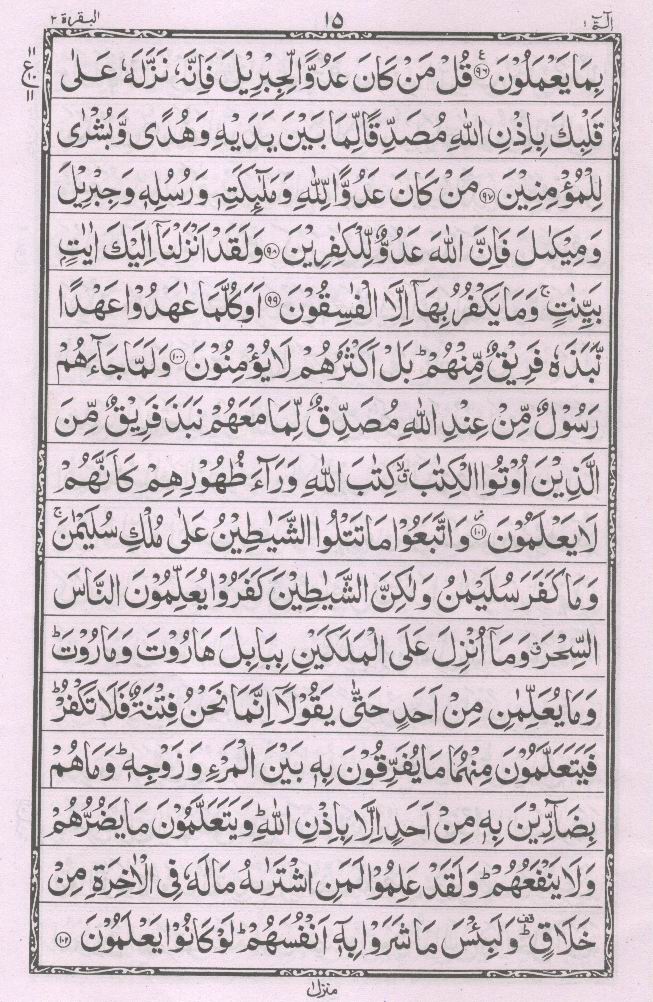 الٓمّٓ ١ ١٥ البقرة ٢
بِمَا يَعْمَلُوْنَ ﴿٩٦﴾ ع قُلْ مَنْ كَانَ عَدُوًّا لِّجِبْرِيْلَ فَاِنَّهٗ نَزَّلَهٗ عَلٰى
قَلْبِكَ بِاِذْنِ اللّٰهِ مُصَدِّقًا لِّمَا بَيْنَ يَدَيْهِ وَهُدًى وَّبُشْرٰى
لِلْمُؤْمِنِيْنَ ﴿٩٧﴾ مَنْ كَانَ عَدُوًّا لِّلّٰهِ وَمَلٰٓئِكَتِهٖ وَرُسُلِهٖ وَجِبْرِيْلَ
وَمِيْكٰىلَ فَاِنَّ اللّٰهَ عَدُوٌّ لِّلْكٰفِرِيْنَ ﴿٩٨﴾ وَلَقَدْ اَنْزَلْنَآ اِلَيْكَ اٰيٰتٍۭ
بَيِّنٰتٍ ۚ وَمَا يَكْفُرُ بِهَآ اِلَّا الْفٰسِقُوْنَ ﴿٩٩﴾ اَوَكُلَّمَا عٰهَدُوْا عَهْدًا
نَّبَذَهٗ فَرِيْقٌ مِّنْهُمْ ؕ بَلْ اَكْثَرُهُمْ لَا يُؤْمِنُوْنَ ﴿١٠٠﴾ وَلَمَّا جَآءَهُمْ
رَسُوْلٌ مِّنْ عِنْدِ اللّٰهِ مُصَدِّقٌ لِّمَا مَعَهُمْ نَبَذَ فَرِيْقٌ مِّنَ
الَّذِيْنَ اُوْتُوا الْكِتٰبَ ۙ كِتٰبَ اللّٰهِ وَرَآءَ ظُهُوْرِهِمْ كَاَنَّهُمْ
لَا يَعْلَمُوْنَ ﴿١٠١﴾ وَاتَّبَعُوْا مَا تَتْلُوا الشَّيٰطِيْنُ عَلٰى مُلْكِ سُلَيْمٰنَ ۚ
وَمَا كَفَرَ سُلَيْمٰنُ وَلٰكِنَّ الشَّيٰطِيْنَ كَفَرُوْا يُعَلِّمُوْنَ النَّاسَ
السِّحْرَ ۗ وَمَآ اُنْزِلَ عَلَى الْمَلَكَيْنِ بِبَابِلَ هَارُوْتَ وَمَارُوْتَ ؕ
وَمَا يُعَلِّمٰنِ مِنْ اَحَدٍ حَتّٰى يَقُوْلَآ اِنَّمَا نَحْنُ فِتْنَةٌ فَلَا تَكْفُرْ ؕ
فَيَتَعَلَّمُوْنَ مِنْهُمَا مَا يُفَرِّقُوْنَ بِهٖ بَيْنَ الْمَرْءِ وَزَوْجِهٖ ؕ وَمَا هُمْ
بِضَآرِّيْنَ بِهٖ مِنْ اَحَدٍ اِلَّا بِاِذْنِ اللّٰهِ ؕ وَيَتَعَلَّمُوْنَ مَا يَضُرُّهُمْ
وَلَا يَنْفَعُهُمْ ؕ وَلَقَدْ عَلِمُوْا لَمَنِ اشْتَرٰىهُ مَا لَهٗ فِى الْاٰخِرَةِ مِنْ
خَلَاقٍ ؕ وَلَبِئْسَ مَا شَرَوْا بِهٖٓ اَنْفُسَهُمْ ؕ لَوْ كَانُوْا يَعْلَمُوْنَ ﴿١٠٢﴾
منزل ١